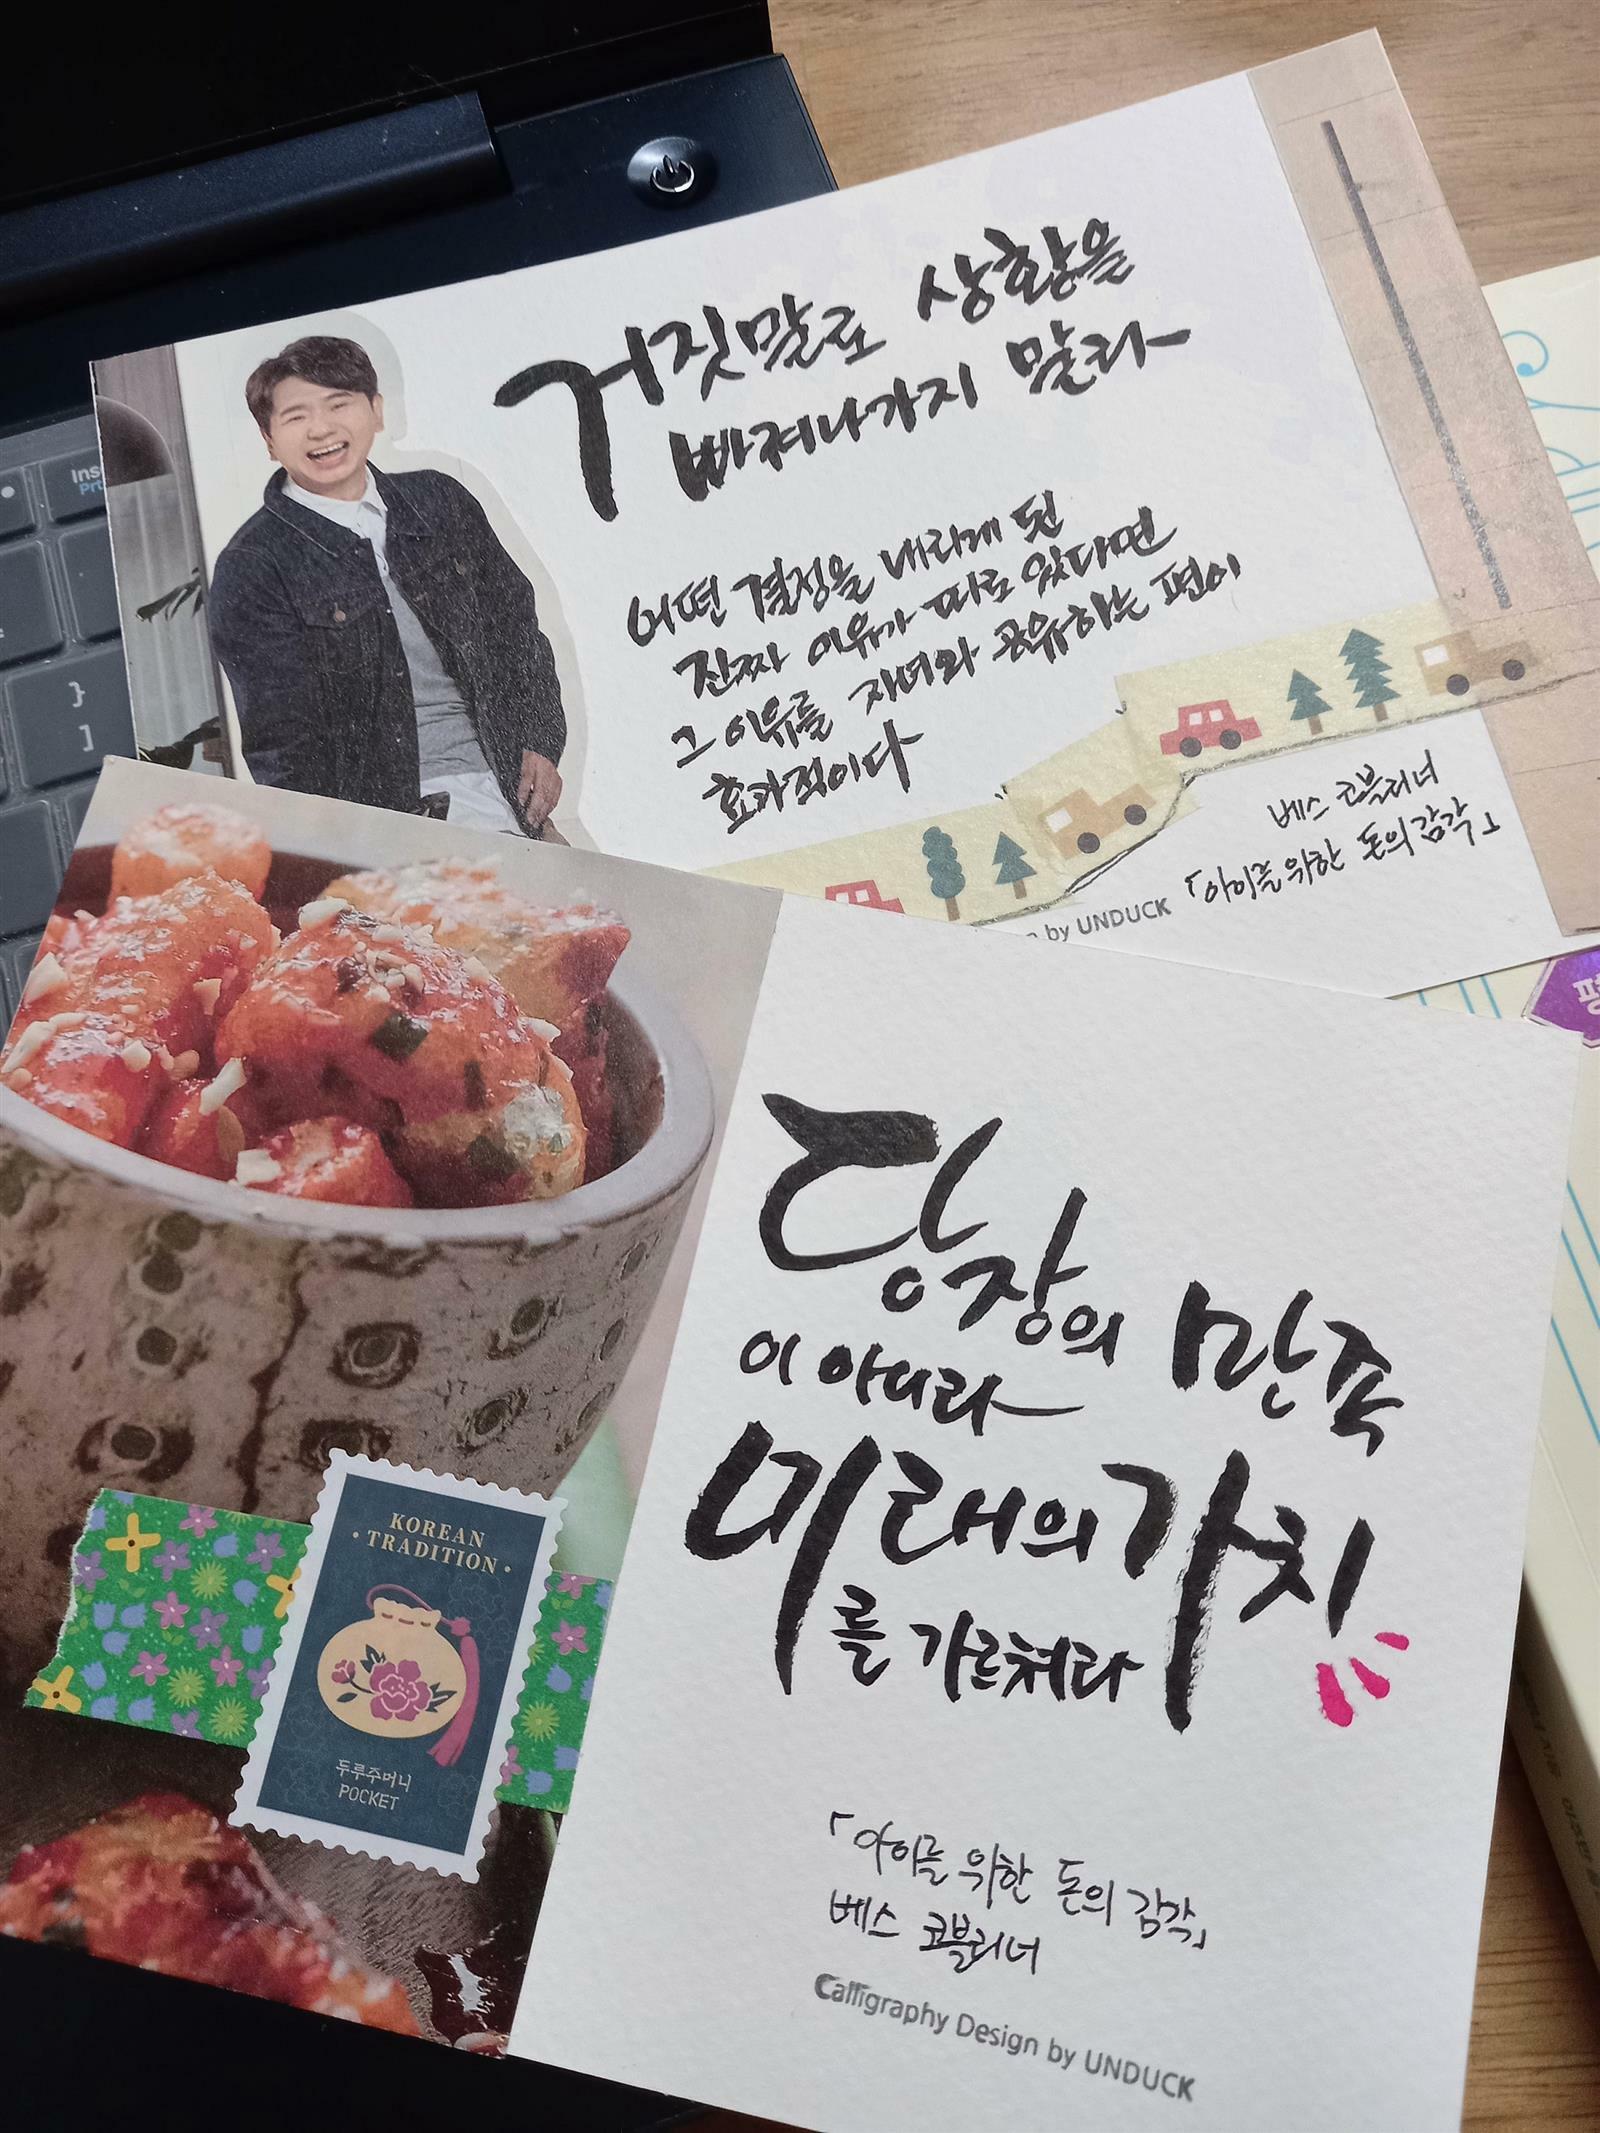 Ins
Prt
}
]
거짓말로 상황을
빠져나가지 말라
어떤 결정을 내리게 된
진짜 이유가 따로 있다면
그 이유를 자녀와 공유하는 편이
효과적이다
베스 코블리너
「아이를 위한 돈의 감각」
by UNDUCK
당장의 만족
이 아니라
미래의 가치
를 가르쳐라
KOREAN
• TRADITION •
두루주머니
POCKET
「아이를 위한 돈의 감각」
베스 코블리너
Calligraphy Design by UNDUCK